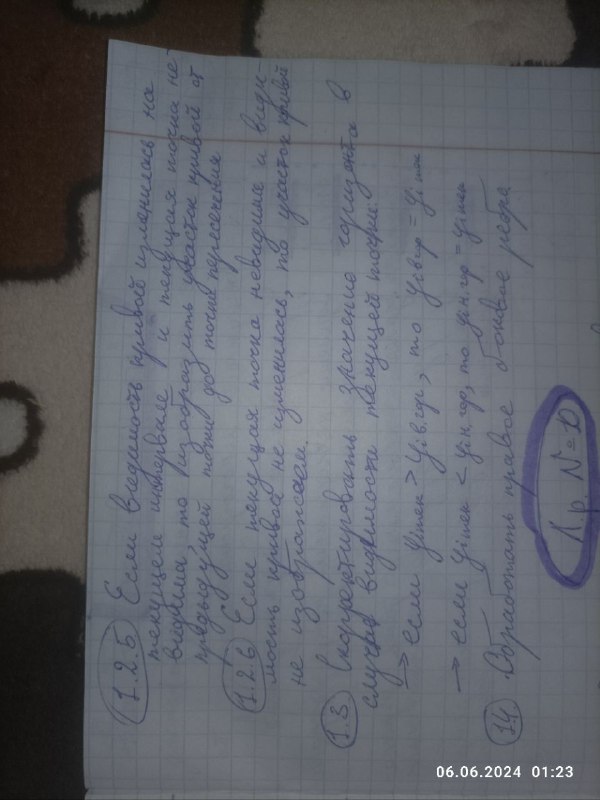 1.2.5 Если видимость кривой изменилась на
текущем интервале и текущая точка не
видима то изобразить участок кривой от
предыдущей точки до точки пересечения
1.2.6 Если текущая точка невидима и види
мость кривой не изменилась, то участок кривой
не изображаем.
1.3 Скорректировать значение горизонта в
случае видимости текущей точки.
→ если yiтек > yiв.гор, то yiв.гор = yiтек
→ если yiтек < yiн.гор, то yiн.гор = yiтек
14. Обработать правое боковые ребра
Л.р. №
06.06.2024 01:23